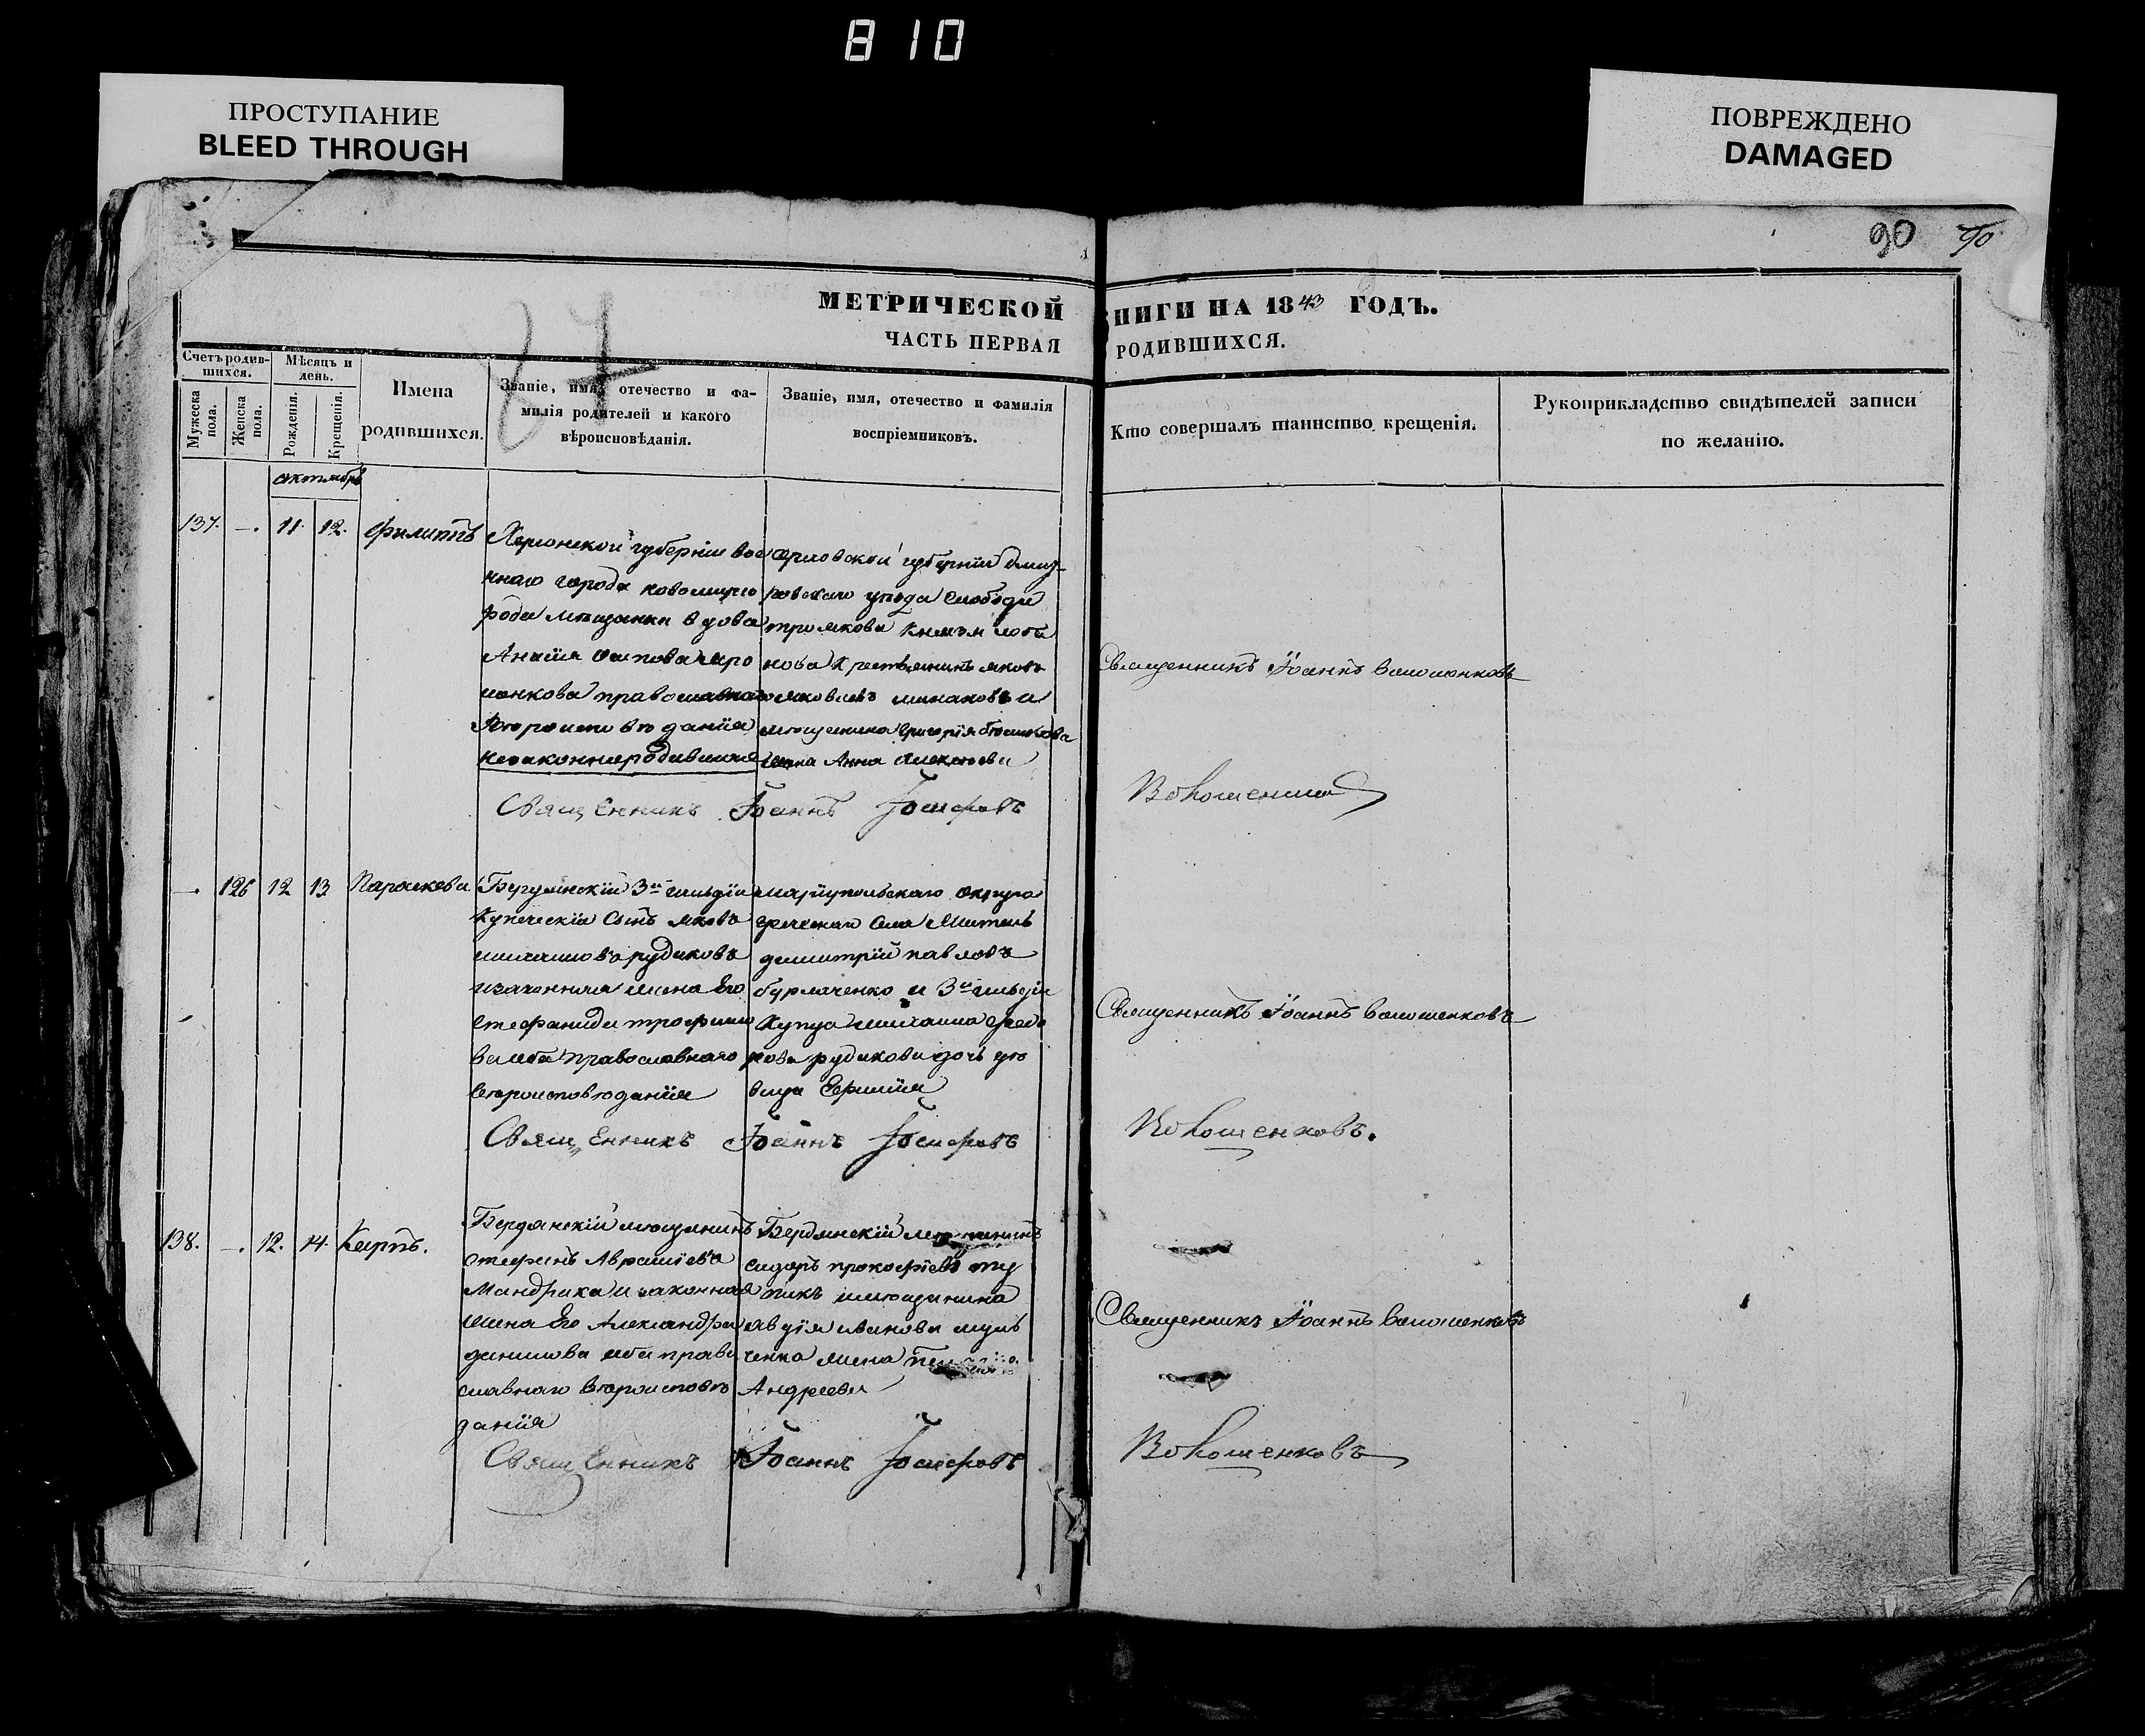 810
ПРОСТУПАНИЕ
BLEED THROUGH
ПОВРЕЖДЕНО
DAMAGED
90 90
МЕТРИЧЕСКОЙ
НИГИ НА 1843 ГОДЪ.
ЧАСТЬ ПЕРВАЯ
РОДИВШИХСЯ.
Счетъ родив-
шихся.
Мужеска
пола.
Женска
пола.
Мѣсяцъ и
день.
Рожденія.
Крещенія.
Имена
родившихся.
Званіе, имя, отечество и фа-
милія родителей и какого
вѣроисповѣданія.
Званіе, имя, отечество и фамилія
воспріемниковъ.
Кто совершалъ таинство крещенія.
Рукоприкладство свидѣтелей записи
по желанію.
октябрь
137. —. 11. 12. Филиппъ
Херсонской губерніи вое
ннаго города новомирго
рода мещанка вдова
Осипова
православнаго
вероисповеданія
незаконнорожденный
орловской губерніи дмит-
ровскаго уезда слободи
крестьянинъ яковъ
яковлевъ минаковъ и
мещанина григорія
жена Анна Алексеева
Священникъ Іоаннъ Волошенковъ
Священникъ Іоаннъ Іосифовъ
—. 126 12 13 Параскева
3й гильдіи
купеческій сынъ яковъ
михайловъ рудиковъ
изаконная жена Его
Стефанида трофимо
ва оба православнаго
вероисповеданія
маріупольскаго округа
греческаго села житель
димитрій павловъ
бурлаченко и 3й гильдіи
купца михаила федо
рова рудикова дочь де
вица Ефимия
Священникъ Іоаннъ Волошенковъ
Священникъ Іоаннъ Іосифовъ
Волошенковъ.
138. —. 12. 14. Карпъ.
Бердянскій мещанинъ
стефанъ Аврамиевъ
Мандрика и законная
жена Его Александра
данилова оба право
славнаго вероисповѣ
данія
Бердянскій мещанинъ
сидоръ прокофіевъ
и мещанина
авдія иванова
жена
Андреева
Священникъ Іоаннъ Волошенковъ
Священникъ Іоаннъ Іосифовъ
Волошенковъ